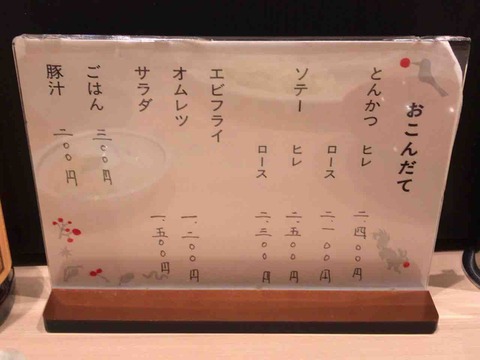 おこんだて
とんかつ ヒレ 二.四〇〇円
ロース 二.一〇〇円
ソテー ヒレ 二.五〇〇円
ロース 二.三〇〇円
エビフライ
オムレツ 一.二〇〇円
サラダ 一.五〇〇円
ごはん 三〇〇円
豚汁 二〇〇円